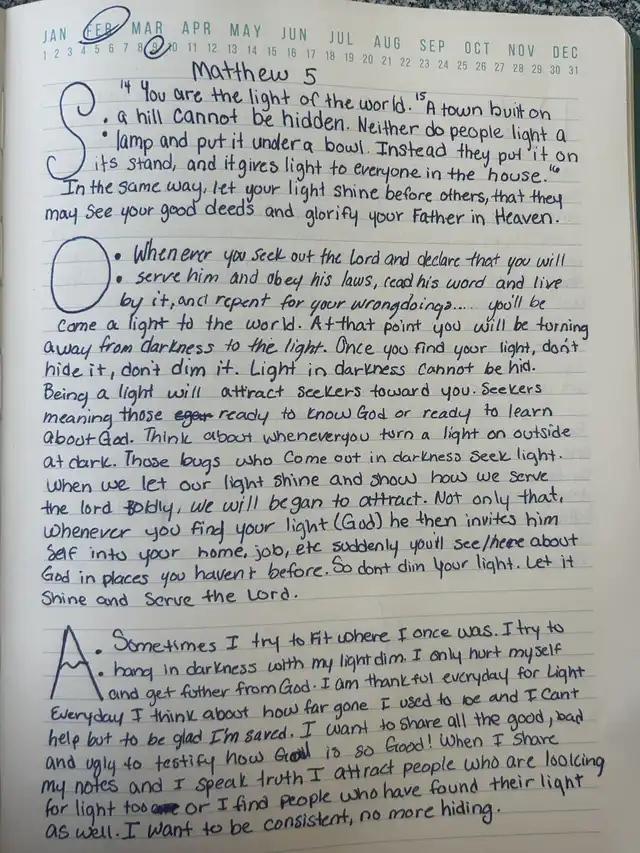 JAN FEB MAR APR MAY JUN JUL AUG SEP OCT NOV DEC
1 2 3 4 5 6 7 8 9 10 11 12 13 14 15 16 17 18 19 20 21 22 23 24 25 26 27 28 29 30 31
Matthew 5
S: 14 "You are the light of the world. 15 A town built on
a hill cannot be hidden. Neither do people light a
lamp and put it under a bowl. Instead they put it on
its stand, and it gives light to everyone in the house." 16
In the same way, let your light shine before others, that they
may see your good deeds and glorify your Father in Heaven.
O: Whenever you seek out the Lord and declare that you will
serve him and obey his laws, read his word and live
by it, and repent for your wrongdoings.... you'll be
come a light to the world. At that point you will be turning
away from darkness to the light. Once you find your light, don't
hide it, don't dim it. Light in darkness cannot be hid.
Being a light will attract seekers toward you. Seekers
meaning those ready to know God or ready to learn
about God. Think about whenever you turn a light on outside
at dark. Those bugs who come out in darkness seek light.
When we let our light shine and show how we serve
the lord Boldly, we will began to attract. Not only that,
whenever you find your light (God) he then invites him
self into your home, job, etc suddenly you'll see/hear about
God in places you haven't before. So dont dim your light. Let it
shine and serve the Lord.
A: Sometimes I try to fit where I once was. I try to
hang in darkness with my light dim. I only hurt myself
and get futher from God. I am thankful everyday for Light
Everyday I think about how far gone I used to be and I cant
help but to be glad I'm saved. I want to share all the good, bad
and ugly to testify how God is so Good! When I share
my notes and I speak truth I attract people who are looking
for light too or I find people who have found their light
as well. I want to be consistent, no more hiding.